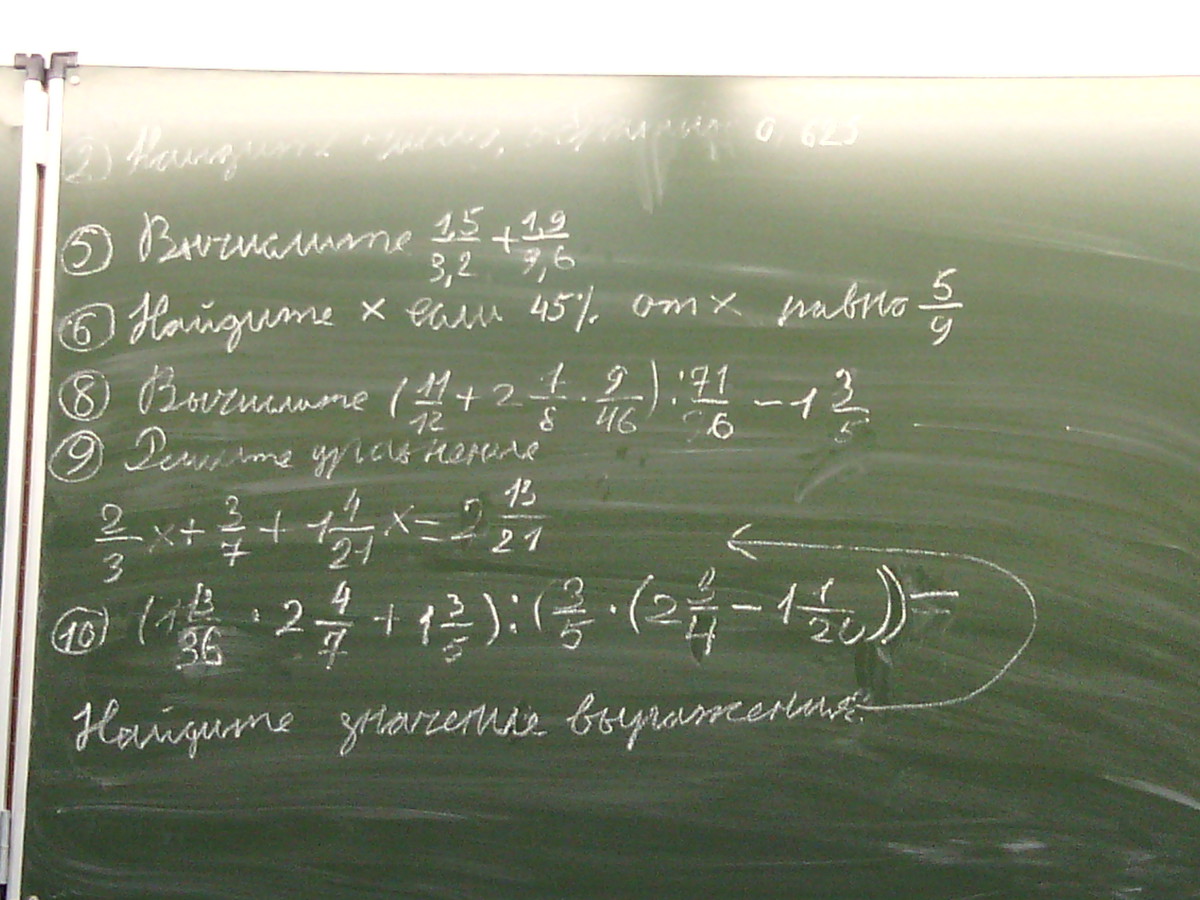 2) Найдите 0,625
5) Вычислите 1,5/3,2 + 1,9/9,6
6) Найдите x если 45% от x равно 5/9
8) Вычислите (11/12 + 2 1/8 · 9/46) : 71/96 - 1 3/5
9) Решите уравнение
2/3 x + 3/7 + 1 1/21 x = 2 13/21
10) (1 13/36 · 2 4/7 + 1 3/5) : (3/5 · (2 3/4 - 1 1/20))
Найдите значение выражения.